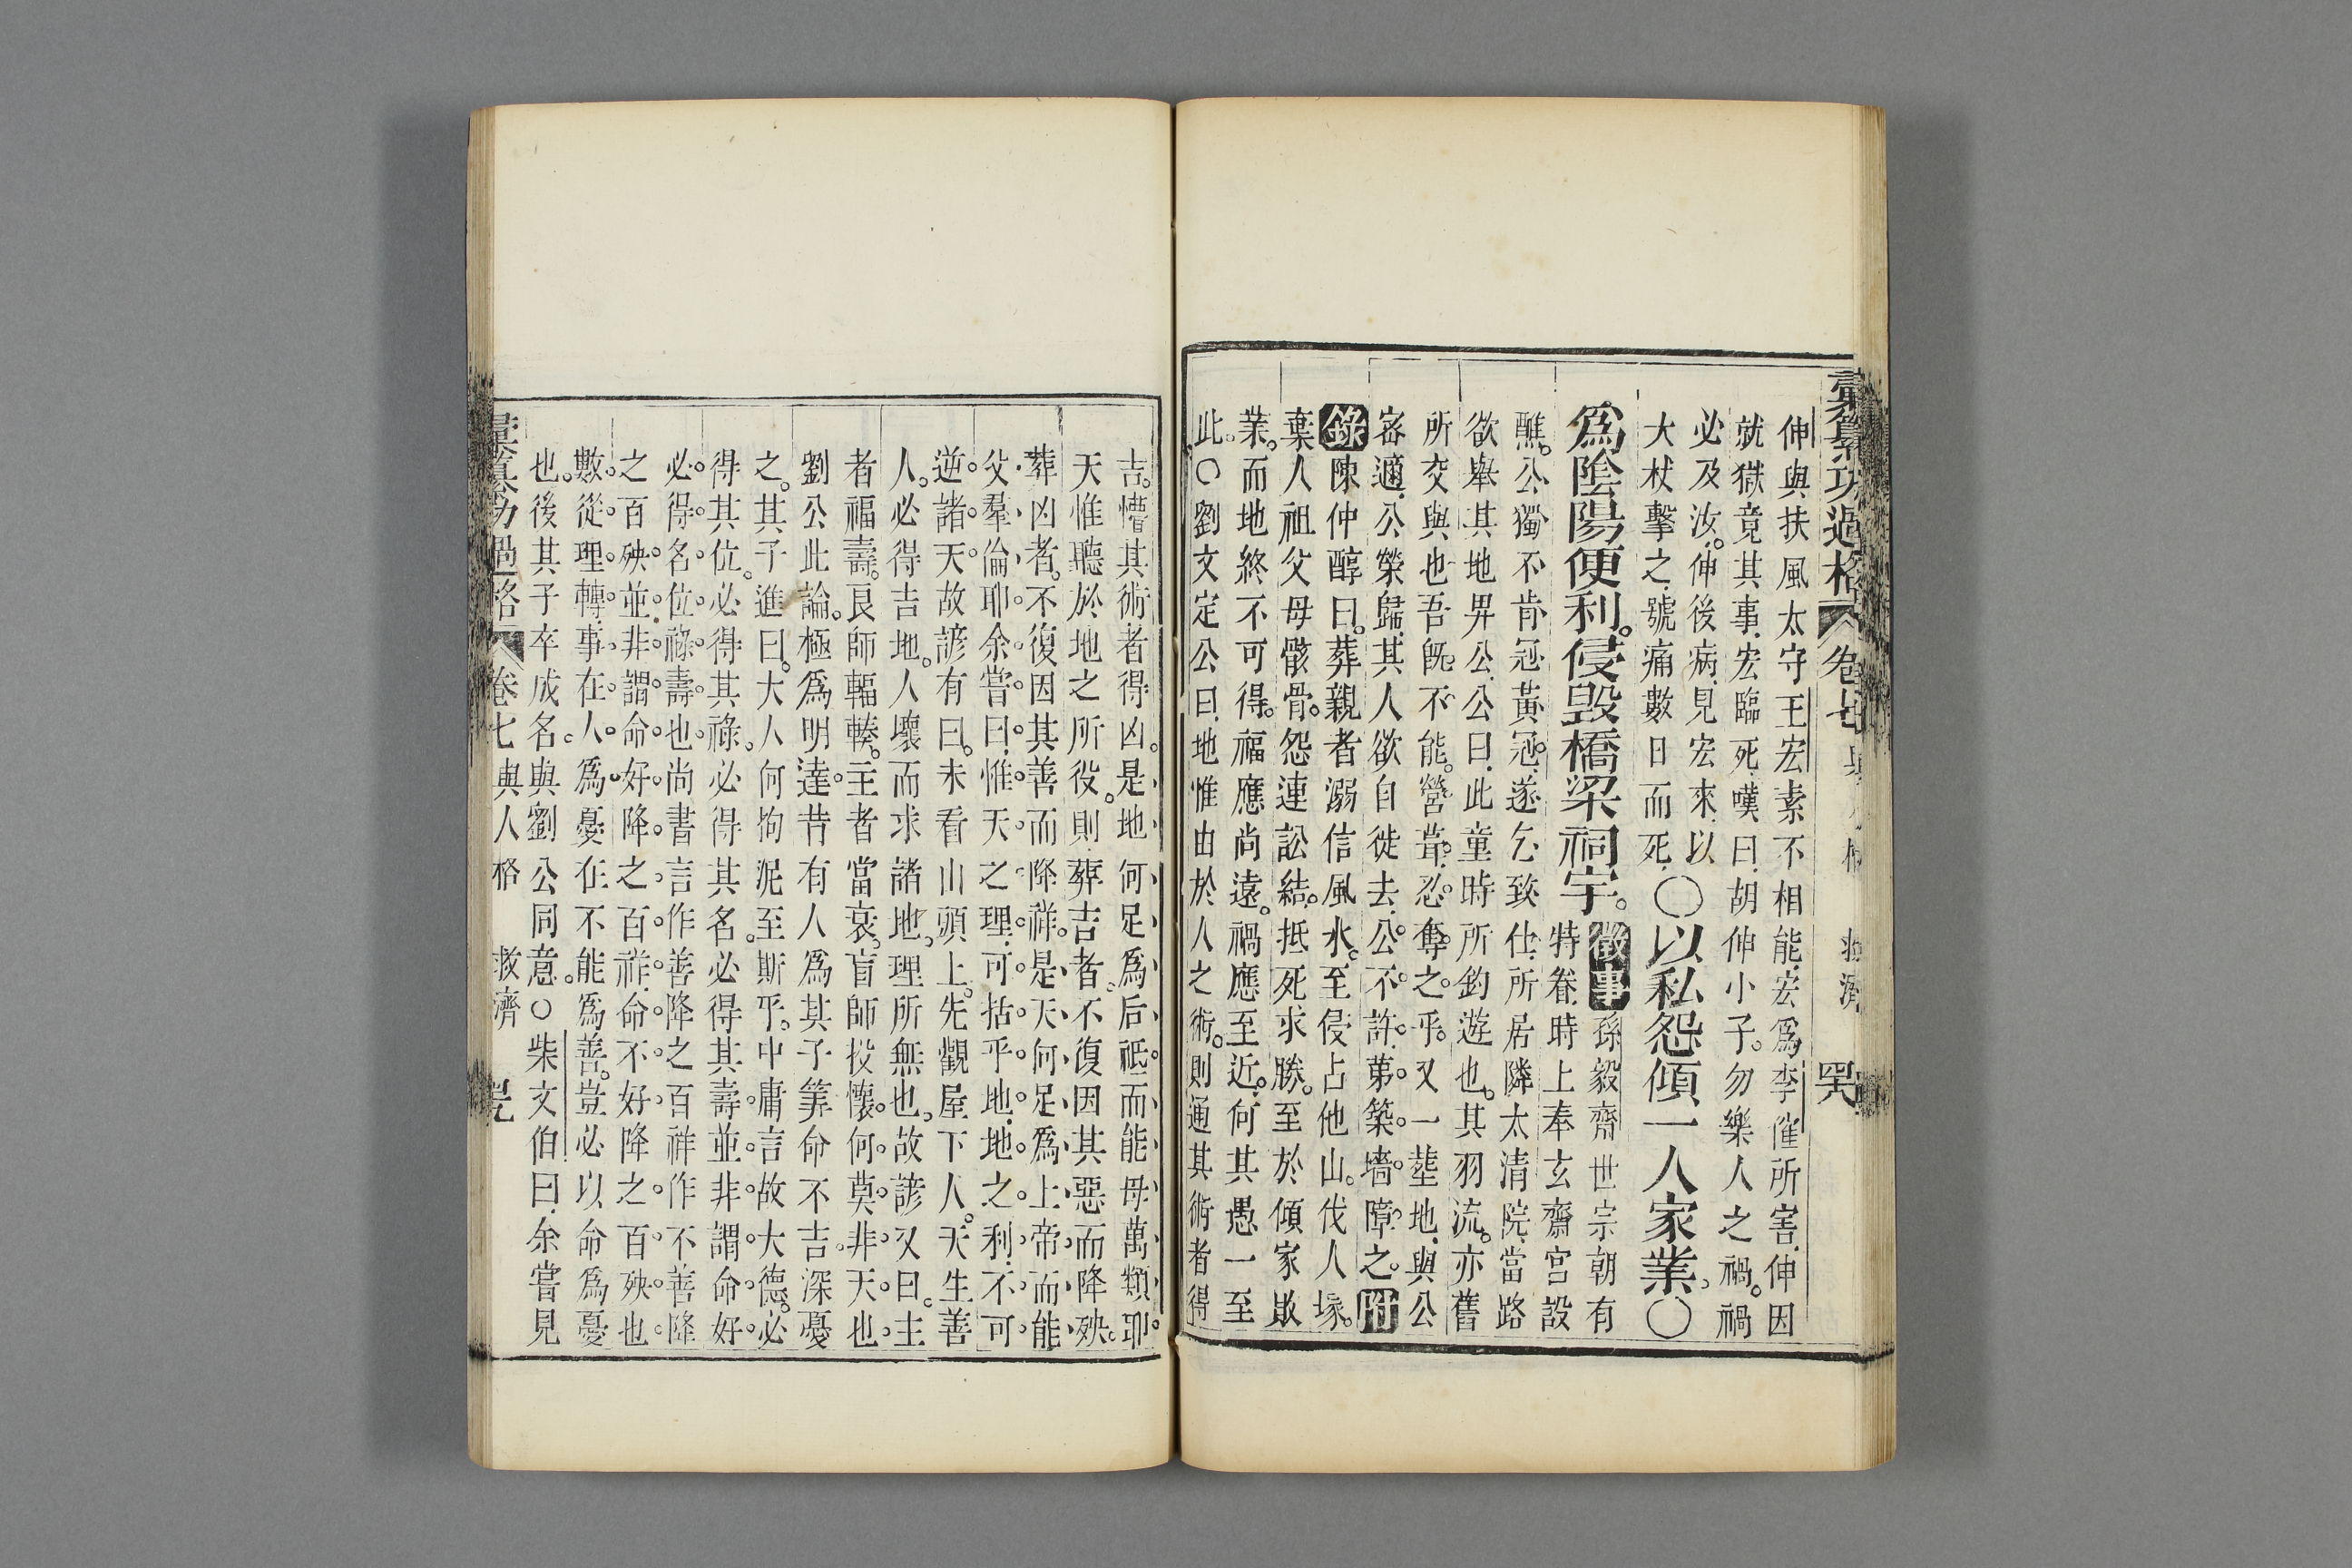 彙纂功過格 卷七 與人格 救濟 罕
伸與扶風太守王宏素不相能宏爲李傕所害伸因
就獄竟其事宏臨死嘆曰胡伸小子勿樂人之禍禍
必及汝伸後病見宏來以
大杖擊之號痛數日而死 ○以私怨傾一人家業○
爲陰陽便利侵毁橋梁祠宇 徵事 孫毅齋世宗朝有
特眷時上奉玄齋宮設
醮公獨不肯冠黃冠遂乞致仕所居隣太清院當路
欲舉其地畀公公曰此童時所釣遊也其羽流亦舊
所交與也吾旣不能營葺忍奪之乎又一塟地與公
宻邇公榮歸其人欲自徙去公不許苐築墻障之 附
錄 陳仲醇曰葬親者溺信風水至侵占他山伐人塚
棄人祖父母骸骨怨連訟結抵死求勝至於傾家敗
業而地終不可得福應尚遠禍應至近何其愚一至
此○劉文定公曰地惟由於人之術則通其術者得
吉懵其術者得凶是地何足爲后祗而能母萬類耶
天惟聽於地之所役則葬吉者不復因其惡而降殃
葬凶者不復因其善而降祥是天何足爲上帝而能
父羣倫耶余嘗曰惟天之理可括乎地地之利不可
逆諸天故諺有曰未看山頭上先觀屋下人天生善
人必得吉地人壞而求諸地理所無也故諺又曰主
者福壽艮師輻輳主者當衰盲師投懷何莫非天也
劉公此論極爲明達昔有人爲其子筭命不吉深憂
之其子進曰大人何拘泥至斯乎中庸言故大德必
得其位必得其祿必得其名必得其壽並非謂命好
必得名位祿壽也尚書言作善降之百祥作不善降
之百殃並非謂命好降之百祥命不好降之百殃也
數從理轉事在人爲憂在不能爲善豈必以命爲憂
也後其子卒成名與劉公同意○柴文伯曰余嘗見
彙纂功過格 卷七 與人格 救濟